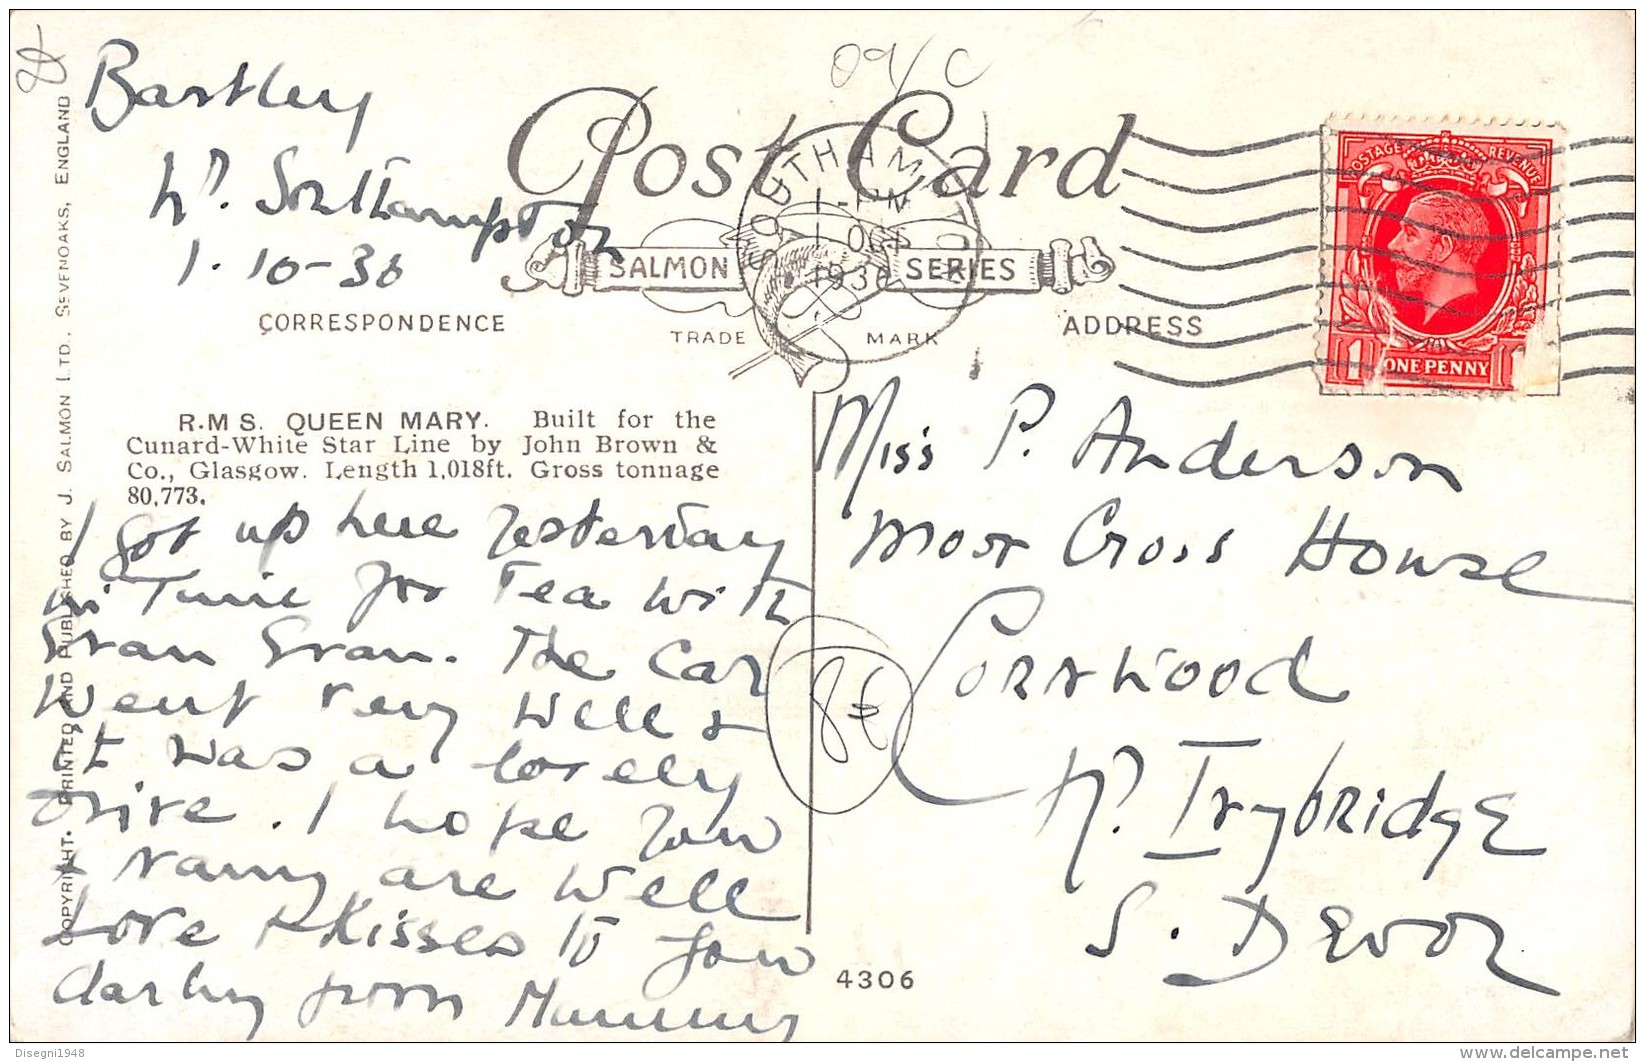 Bartley
Nr. Southampton
1.10-36
Post Card
SALMON SERIES
TRADE MARK
CORRESPONDENCE
ADDRESS
SOUTHAMPTON
1-PM
1 OCT
1936
POSTAGE REVENUE
1 ONE PENNY 1
R.M.S. QUEEN MARY. Built for the
Cunard-White Star Line by John Brown &
Co., Glasgow. Length 1,018ft. Gross tonnage
80,773.
I got up here yesterday
in Time for Tea with
Gran Gran. The Car
Went very well &
it was a lovely
Drive. I hope you
& Nanny are well
Love & Kisses to you
darling from Mummy
Miss P. Anderson
Moor Cross House
Cornwood
Nr. Ivybridge
S. Devon
4306
COPYRIGHT. PRINTED AND PUBLISHED BY J. SALMON LTD., SEVENOAKS, ENGLAND
Disegni1948
delcampe.net